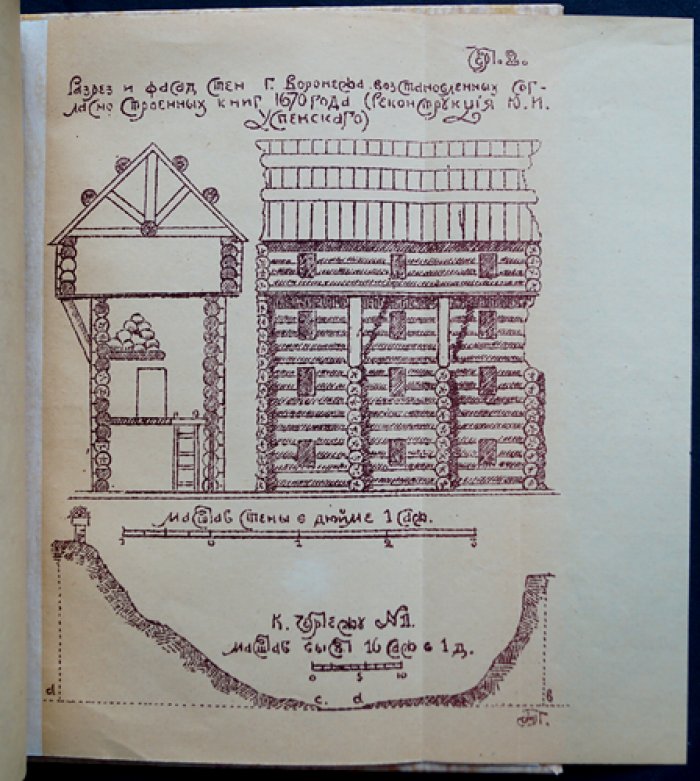 Разрез и фасад стен г. Воронежа возстановленных сог-
ласно строенных книг 1670 года (реконструкцiя Ю. И.
Успенскаго)
масштаб стены в дюйме 1 саж.
1 0 1 2 3
К. чертежу №1.
масштаб 16 саж в 1 д.
0 5 10
d c. d в